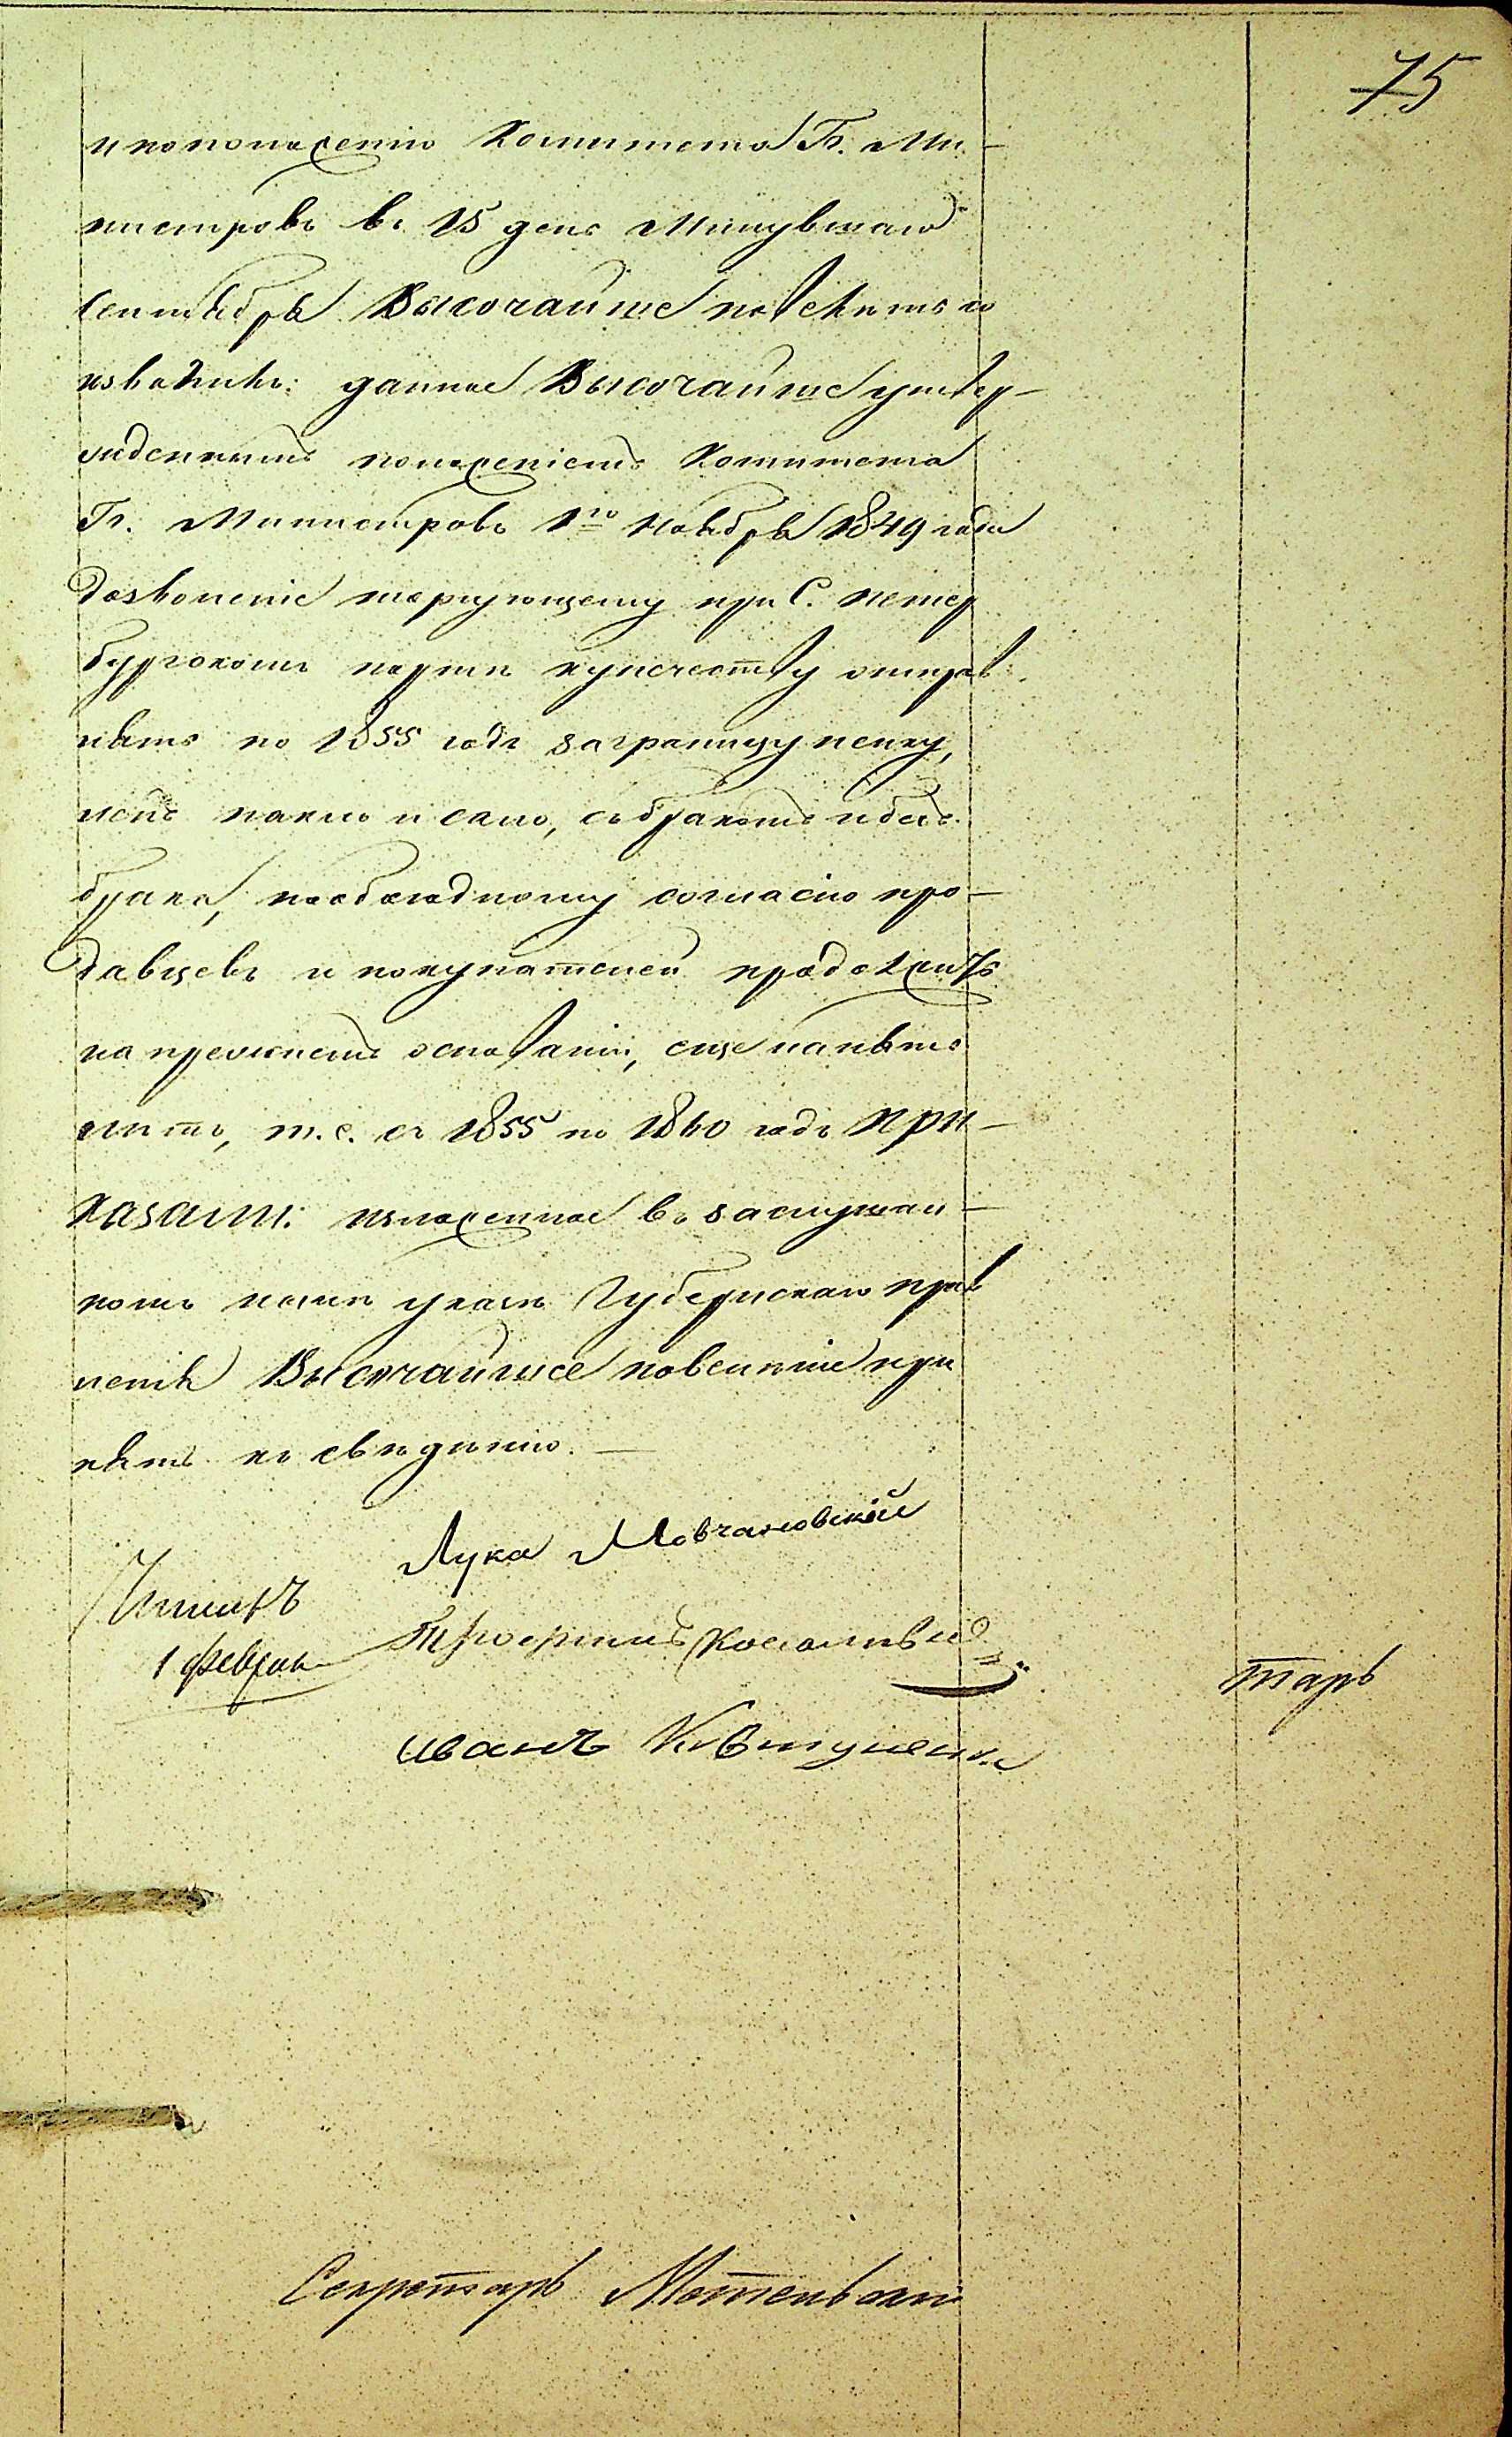 75
и по положенію Комитета Гг. Ми-
нистровъ въ 15 день Минувшаго
Сентября Высочайше повелѣть со
изволилъ: данное Высочайше утвер-
жденнымъ положеніемъ Комитета
Гг. Министровъ 1го Ноября 1849 года
дозволеніе торгующему при С. петер
бургскомъ портѣ купечеству отправ
лять по 1855 годъ за границу пеньку,
ленъ паклю и сало, съ бракомъ и безъ
брака, по обоюдному согласію про-
давцевъ и покупателей продолжить
на прежнемъ основаніи, еще на пять
лѣтъ, т.е. съ 1855 по 1860 годъ При-
казали: изложенное въ заслушан-
номъ нами указѣ Губернскаго прав
ленія Высочайшее повеленіе при
нять къ свѣденію. —
Лука Мовчановскій
1 Февраля
тарь
Иванъ
Секретарь